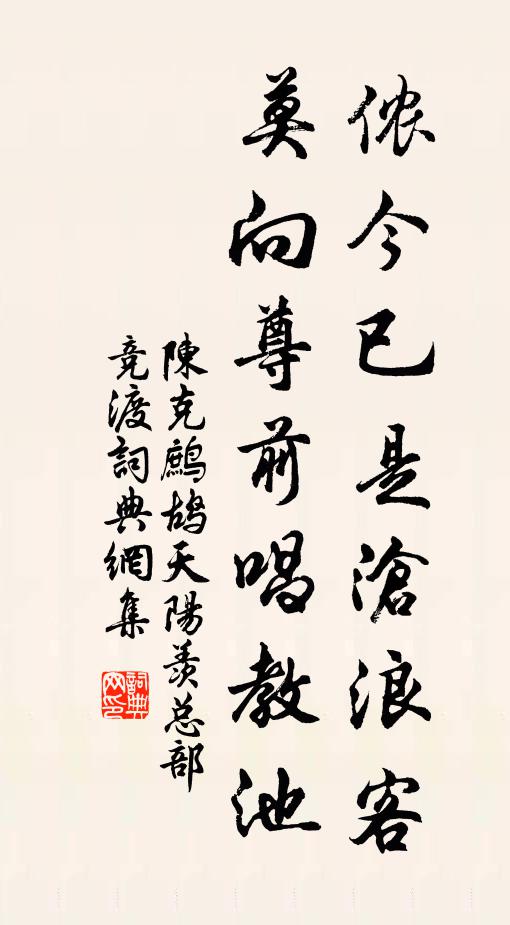 侬今已是滄浪客
莫向尊前唱教池
陳克鷓鴣天陽羨总部
竞渡詞典網集
詞典网印